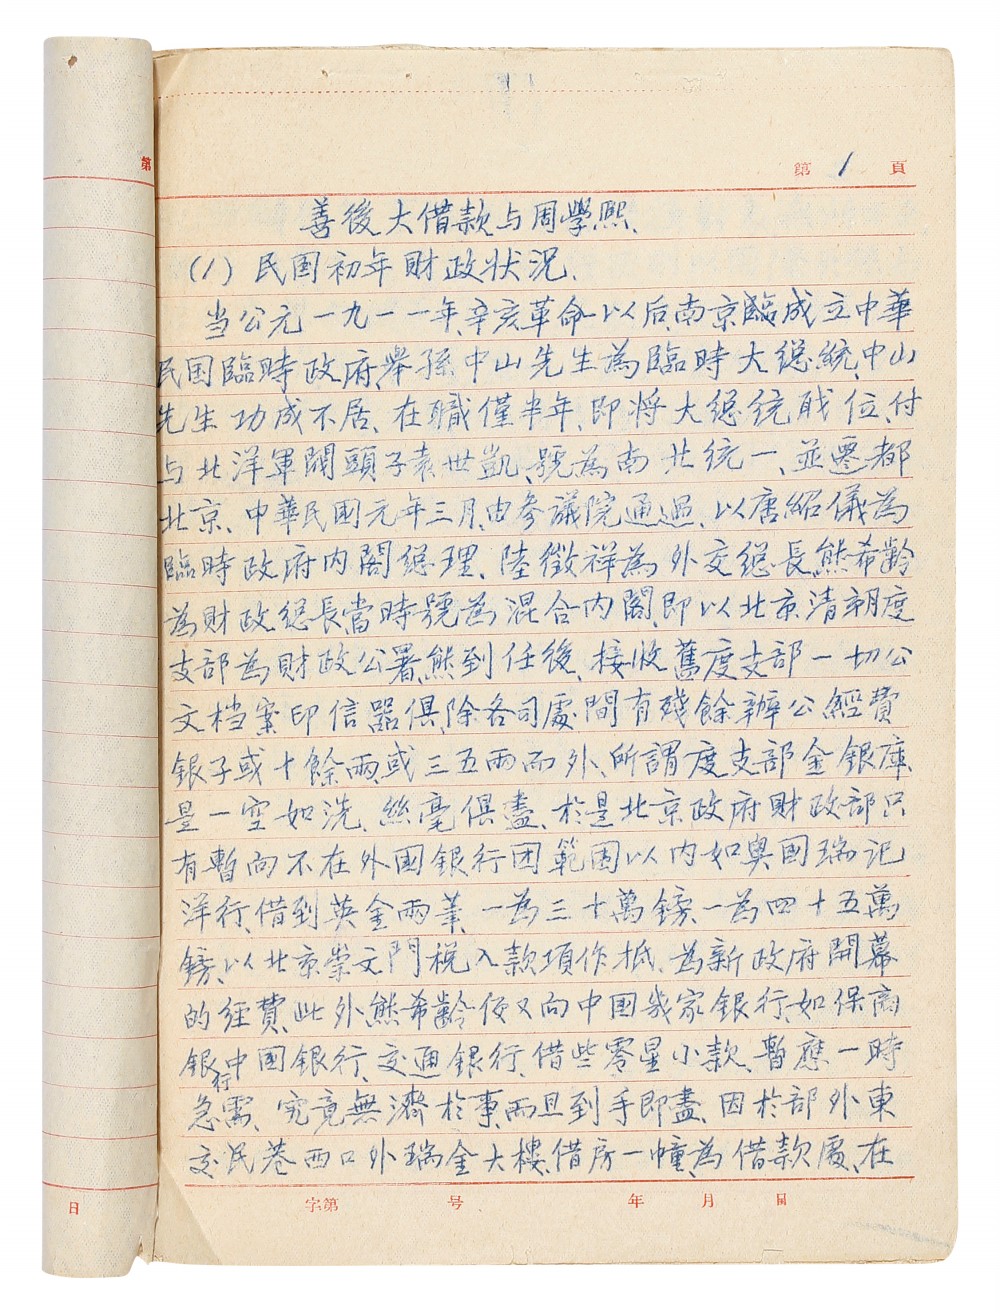 第
第 1 頁
善後大借款与周學熙、
(1) 民国初年財政狀況、
当公元一九一一年、辛亥革命以后、南京臨成立中華
民国臨時政府、舉孫中山先生為臨時大總統、中山
先生功成不居、在職僅半年、即将大總統職位、付
与北洋軍閥頭子袁世凱、號為南北統一、並遷都
北京、中華民國元年三月、由参議院通過、以唐紹儀為
臨時政府内閣總理、陸徵祥為外交總長、熊希齡
為財政總長、當時號為混合内閣、即以北京清朝度
支部為財政公署、熊到任後、接收舊度支部一切公
文档案印信器俱、除各司處、間有殘餘辦公經費
銀子或十餘兩、或三五兩而外、所謂度支部金銀庫、
是一空如洗、絲毫俱盡、於是北京政府財政部只
有暫向不在外國銀行团範圍以内如奥國瑞记
洋行、借到英金兩筆、一為三十萬鎊、一為四十五萬
鎊、以北京崇文門税入款項作抵、為新政府開幕
的经費、此外熊希齡便又向中國幾家銀行、如保商
銀行中國銀行、交通銀行、借些零星小款、暫應一時
急需、究竟無濟於事、而且到手即盡、因於部外東
交民巷西口外瑞金大樓、借房一幢、為借款處、在
日
字第 号 年 月 日